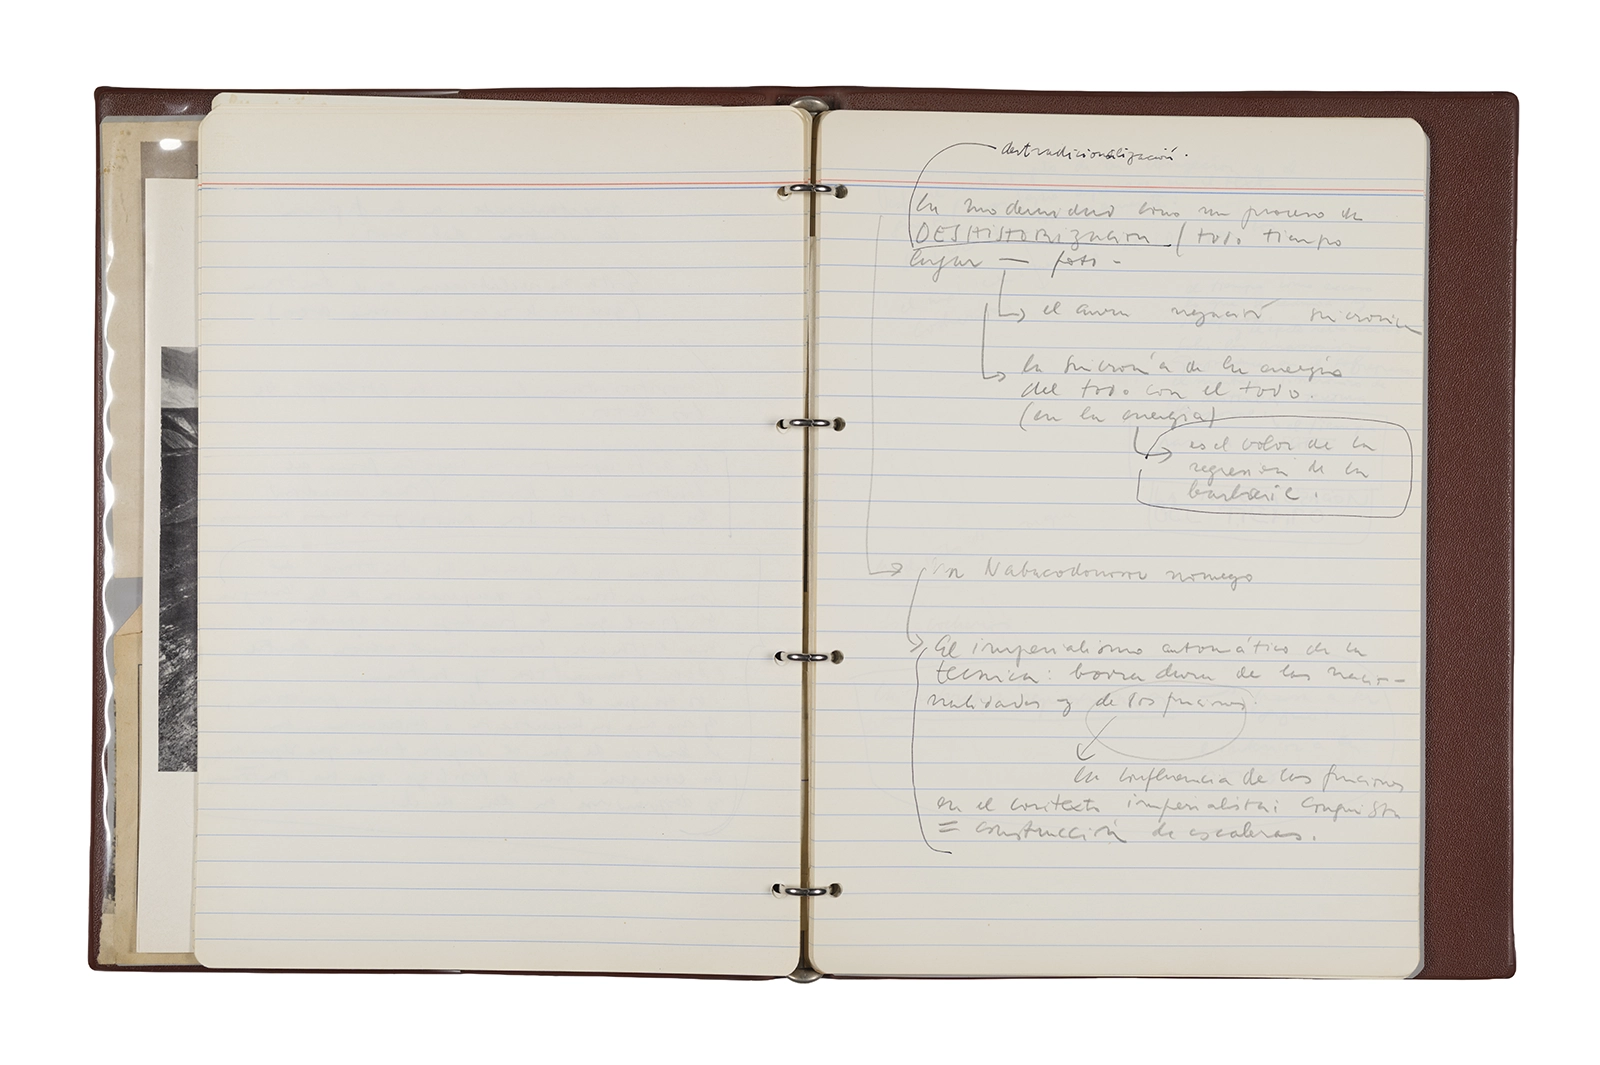 destradicionalización.
la modernidad como un proceso de
DESHISTORIZACION (todo tiempo
lugar — foto -
el aura negación sincronía
la sincronía de la energía
del todo con el todo.
(en la energía)
es el valor de la
regresión de la
barbarie.
en Nabucodonosor
El imperialismo automático de la
técnica: borradura de las nacio-
nalidades y de las funciones.
la confluencia de las funciones
en el contexto imperialista: conquista
= construcción de escaleras.